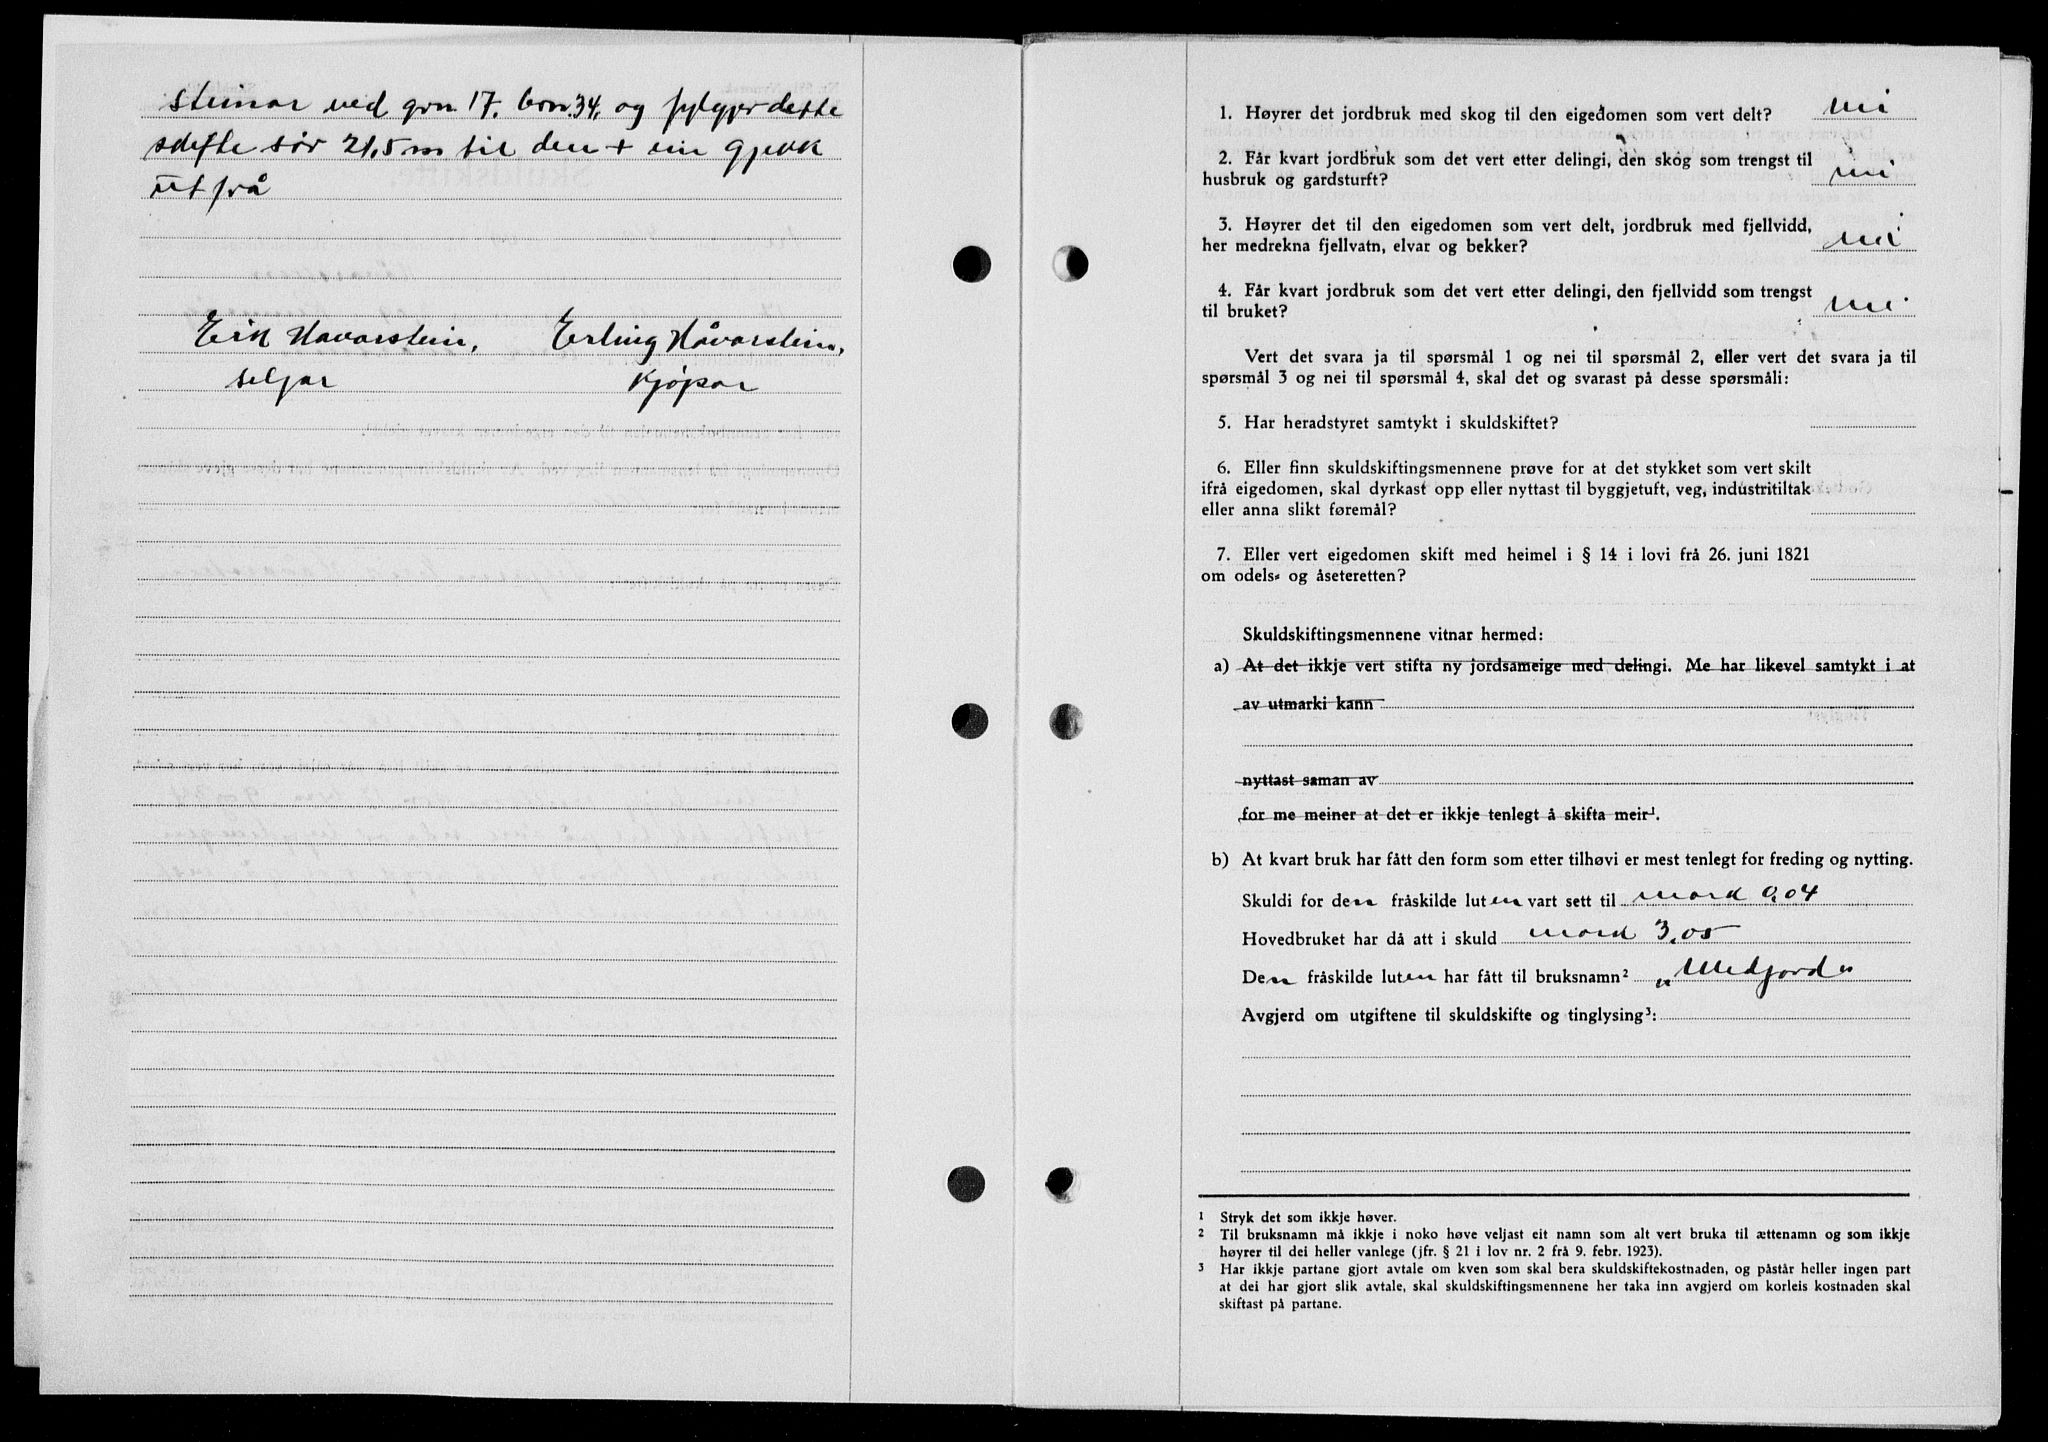 steinar ved grn. 17. brn. 34, og fylgjer dette
skifte sør 21,5 m til den + ein gjekk
ut frå
Erik Havarstein, Erling Håvarstein,
seljar Kjøpar
1. Høyrer det jordbruk med skog til den eigedomen som vert delt? nei
2. Får kvart jordbruk som det vert etter delingi, den skog som trengst til
husbruk og gardsturft? nei
3. Høyrer det til den eigedomen som vert delt, jordbruk med fjellvidd,
her medrekna fjellvatn, elvar og bekker? nei
4. Får kvart jordbruk som det vert etter delingi, den fjellvidd som trengst
til bruket? nei
Vert det svara ja til spørsmål 1 og nei til spørsmål 2, eller vert det svara ja til
spørsmål 3 og nei til spørsmål 4, skal det og svarast på desse spørsmåli:
5. Har heradstyret samtykt i skuldskiftet?
6. Eller finn skuldskiftingsmennene prøve for at det stykket som vert skilt
ifrå eigedomen, skal dyrkast opp eller nyttast til byggjetuft, veg, industritiltak
eller anna slikt føremål?
7. Eller vert eigedomen skift med heimel i § 14 i lovi frå 26. juni 1821
om odels- og åseteretten?
Skuldskiftingsmennene vitnar hermed:
a) At det ikkje vert stifta ny jordsameige med delingi. Me har likevel samtykt i at
av utmarki kann
nyttast saman av
for me meiner at det er ikkje tenlegt å skifta meir¹.
b) At kvart bruk har fått den form som etter tilhøvi er mest tenlegt for freding og nytting.
Skuldi for den fråskilde luten vart sett til mark 0,04
Hovedbruket har då att i skuld mark 3,05
Den fråskilde luten har fått til bruksnamn² „Medjord"
Avgjerd om utgiftene til skuldskifte og tinglysing³:
1 Stryk det som ikkje høver.
2 Til bruksnamn må ikkje i noko høve veljast eit namn som alt vert bruka til ættenamn og som ikkje
høyrer til dei heller vanlege (jfr. § 21 i lov nr. 2 frå 9. febr. 1923).
3 Har ikkje partane gjort avtale om kven som skal bera skuldskiftekostnaden, og påstår heller ingen part
at dei har gjort slik avtale, skal skuldskiftingsmennene her taka inn avgjerd om korleis kostnaden skal
skiftast på partane.